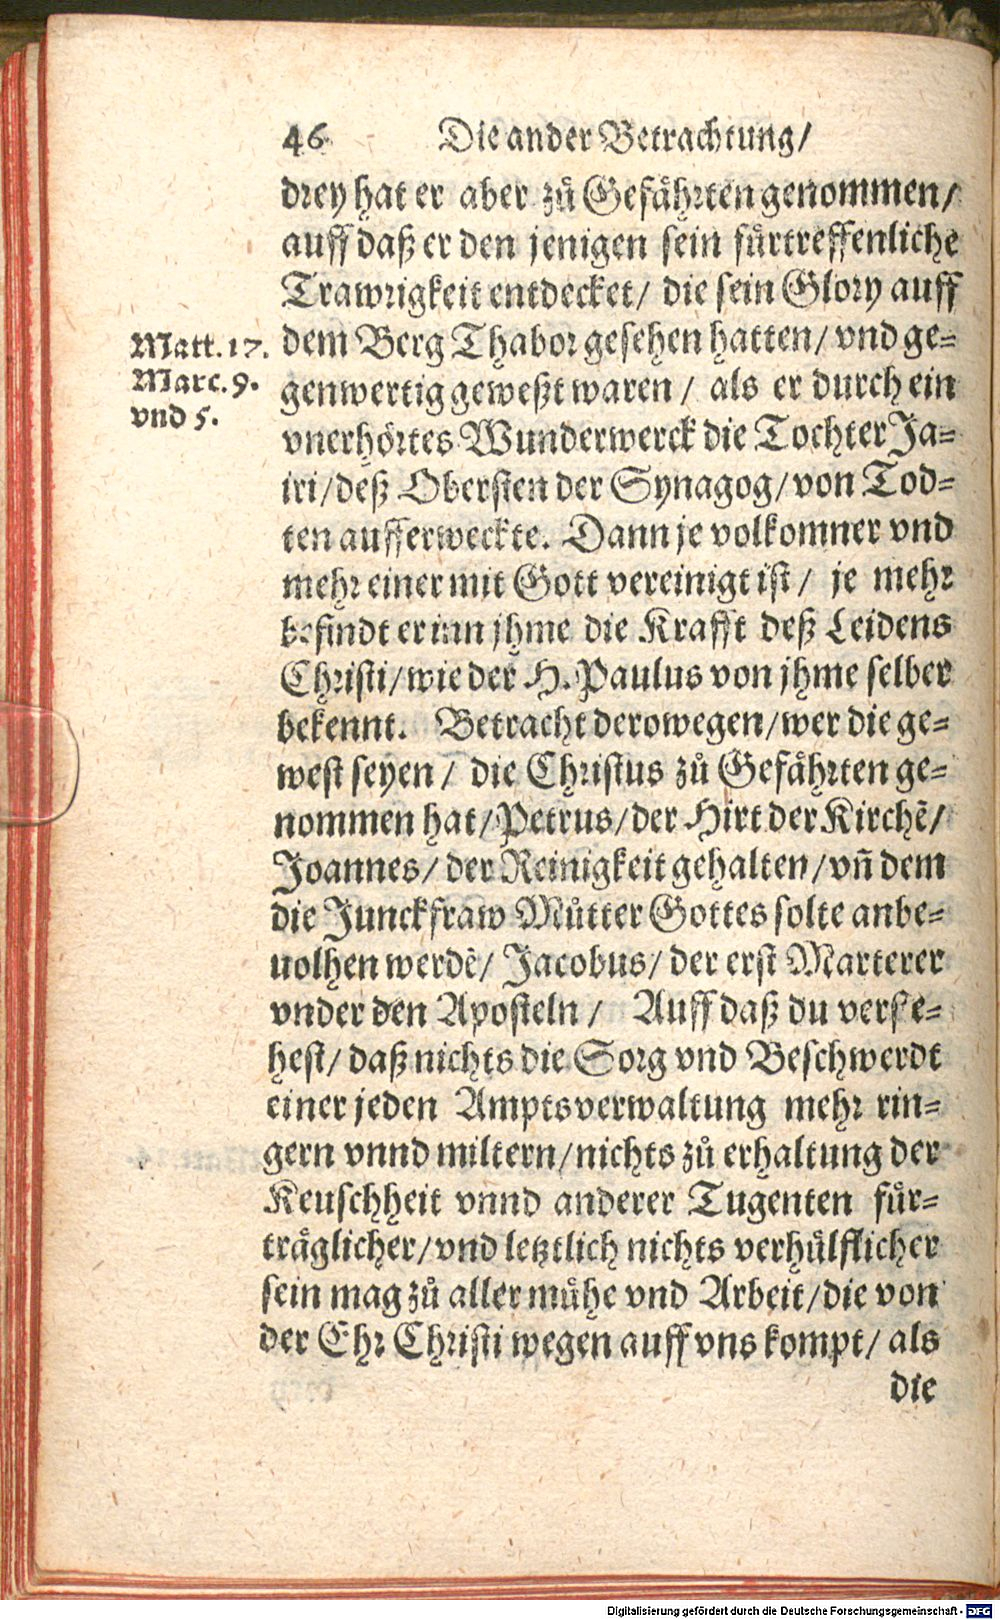 46 Die ander Betrachtung/
drey hat er aber zů Gefåhrten genommen/
auff daß er den jenigen sein fůrtreffenliche
Trawrigkeit entdecket/ die sein Glory auff
Matt. 17.
Marc. 9.
vnd 5.
dem Berg Thabor gesehen hatten/ vnd ge=
genwertig geweßt waren/ als er durch ein
vnerhörtes Wunderwerck die Tochter Ja=
iri/ deß Obersten der Synagog/ von Tod=
ten aufferweckte. Dann je volkomner vnd
mehr einer mit Gott vereinigt ist/ je mehr
befindt er inn jhme die Krafft deß Leidens
Christi/ wie der H. Paulus von jhme selber
bekennt. Betracht derowegen/ wer die ge=
west seyen/ die Christus zů Gefåhrten ge=
nommen hat/ Petrus/ der Hirt der Kirchẽ/
Joannes/ der Reinigkeit gehalten/ vñ dem
die Junckfraw Můtter Gottes solte anbe=
uolhen werdẽ/ Jacobus/ der erst Marterer
vnder den Aposteln/ Auff daß du verste=
hest/ daß nichts die Sorg vnd Beschwerdt
einer jeden Amptsverwaltung mehr rin=
gern vnnd miltern/ nichts zů erhaltung der
Keuschheit vnnd anderer Tugenten fůr=
tråglicher/ vnd letztlich nichts verhůlflicher
sein mag zů aller můhe vnd Arbeit/ die von
der Ehr Christi wegen auff vns kompt/ als
die
Digitalisierung gefördert durch die Deutsche Forschungsgemeinschaft - DFG